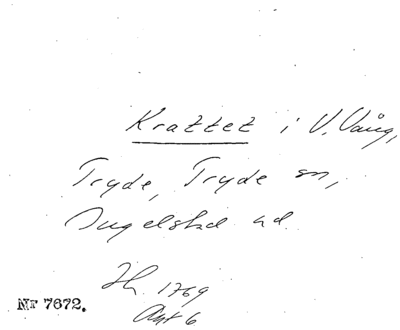 Krattet i V. Vång,
Tryde, Tryde sn,
Ingelstad hd
Nr 7672.
1769
Akt 6